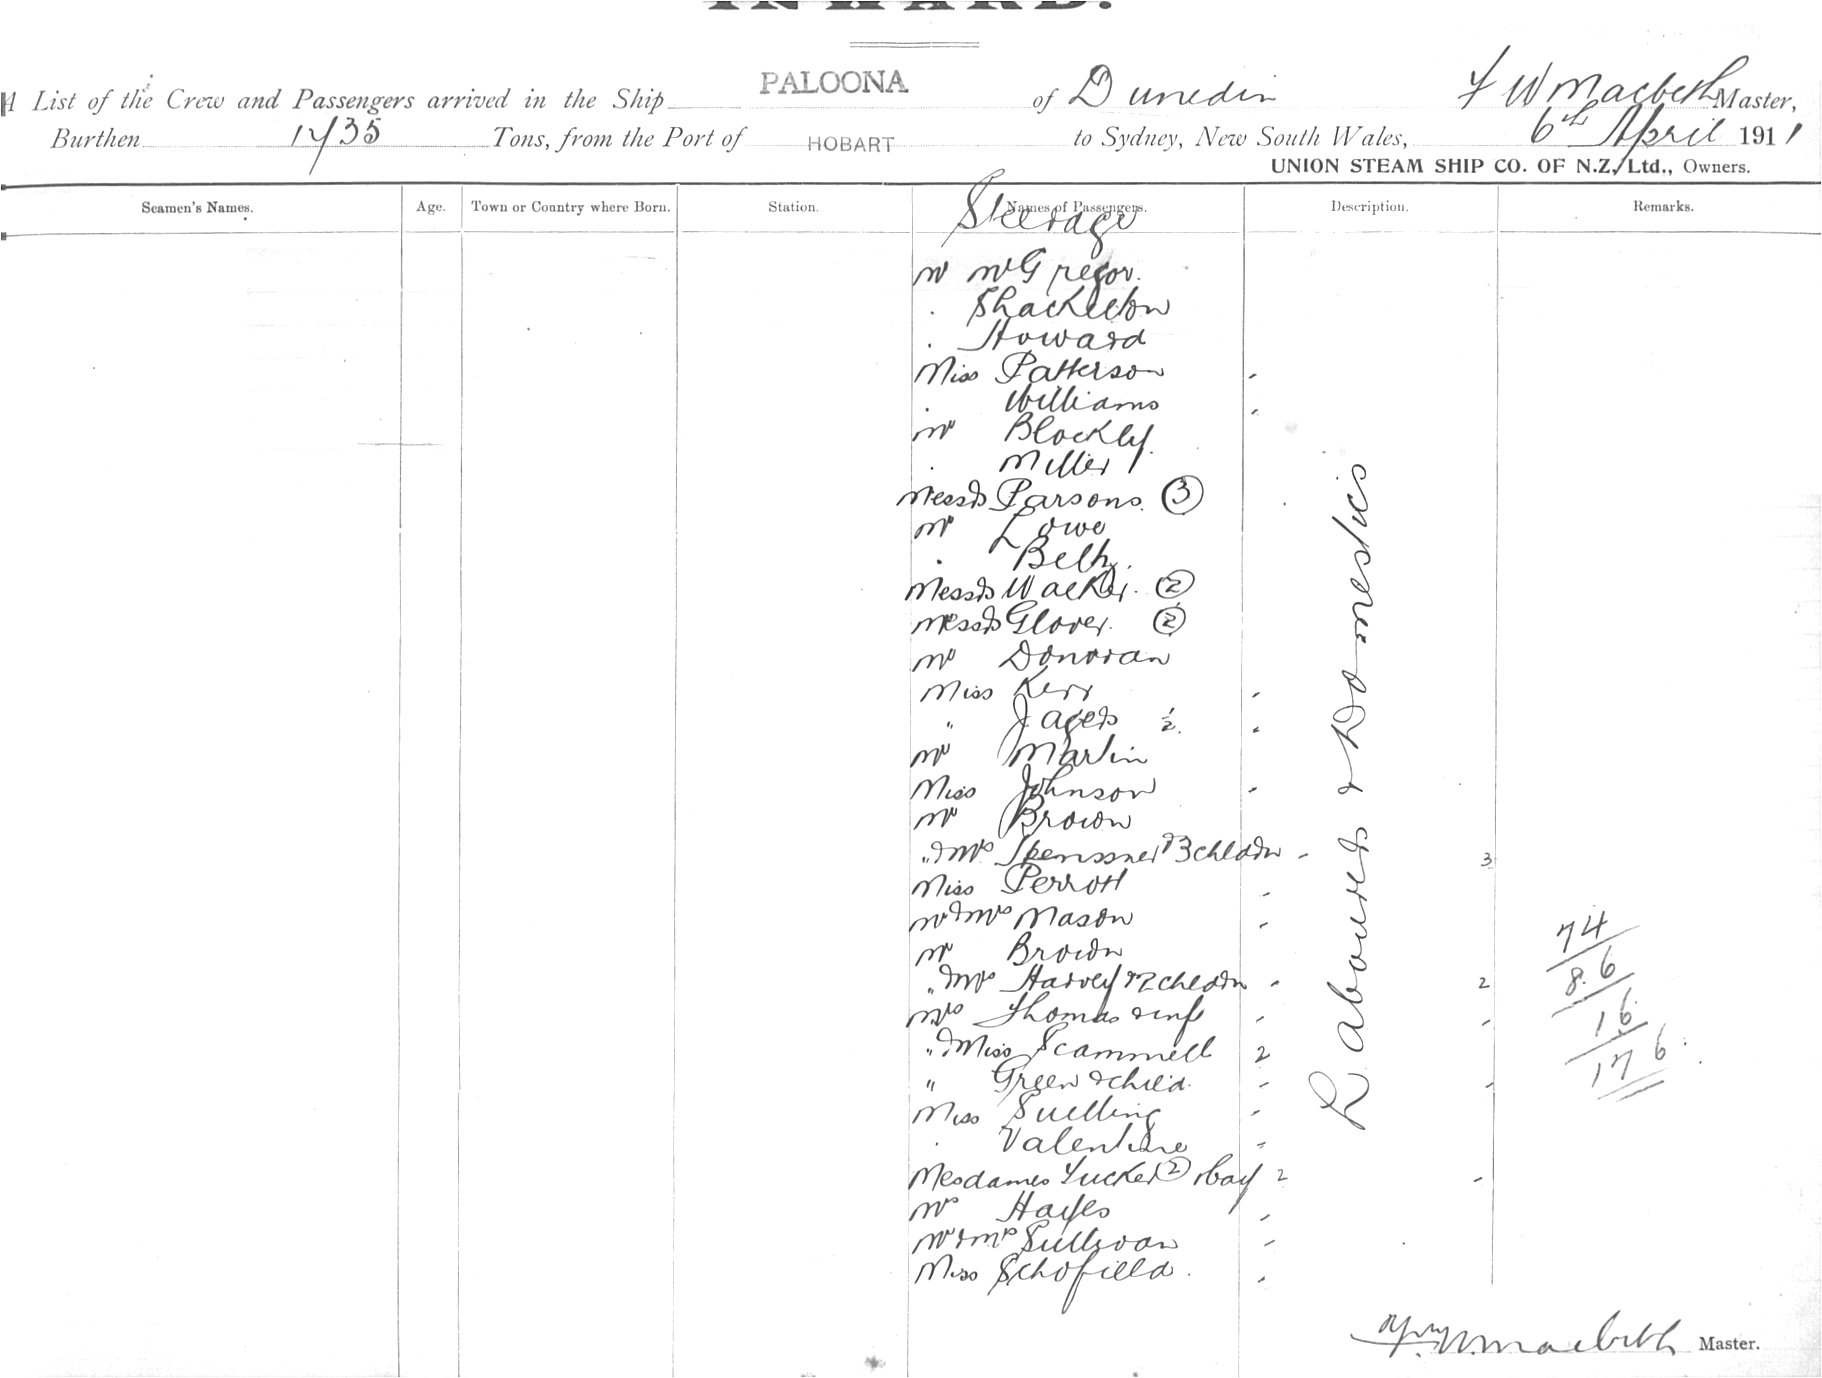 INWARD.
A List of the Crew and Passengers arrived in the Ship PALOONA of Dunedin F W Macbeth Master,
Burthen 1735 Tons, from the Port of HOBART to Sydney, New South Wales, 6th April 1911
UNION STEAM SHIP CO. OF N.Z., Ltd., Owners.
Seamen's Names. Age. Town or Country where Born. Station. Names of Passengers. Description. Remarks.
Steerage
Mr McGregor.
. Shackleton
. Howard
Miss Patterson -
. Williams -
Mr Blockley
. Miller
Messrs Parsons. 3
Mr Lowe
. Belk.
Messrs Walker. 2
Messrs Glover. 2
Mr Donovan
Miss Kerr -
" Jagers ½ -
Mr Martin
Miss Johnson -
Mr Brown
" & Mrs & 3 chldrn - 3
Miss Perrott -
Mr & Mrs Mason -
Mr Brown
" & Mrs Harvey & 2 chldrn - 2
Mrs Thomas & inf - -
" & Miss Scammell 2
" Green & child. - -
Miss Suelling -
. Valentine -
Mesdames Tucker 2 2 -
Mrs Hayes -
Mr & Mrs Sullivan -
Miss Schofield. -
Labourers & Domestics
74
8.6
16.
17 6
F. W. Macbeth Master.